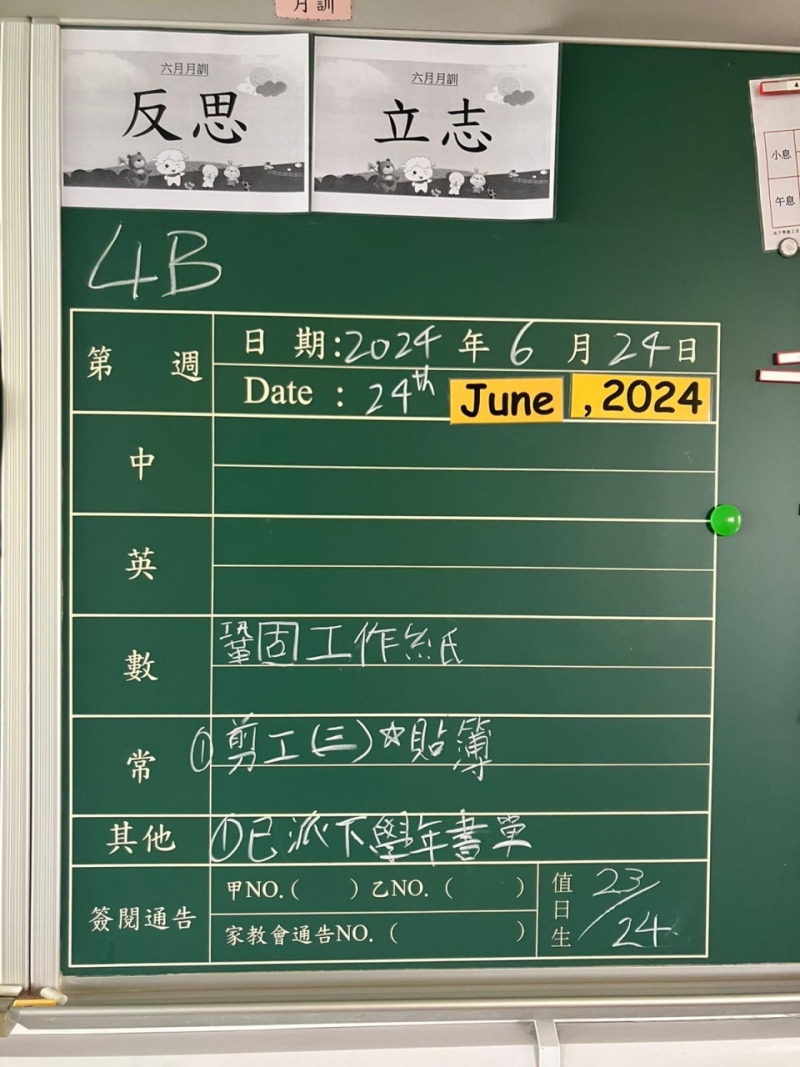 月訓
六月月訓
反思
六月月訓
立志
4
小息
午息
4B
第 週
日 期:2024 年 6 月 24 日
Date : 24th June , 2024
中
英
數 鞏固工作紙
常 ①剪工(三)☆貼簿
其他 ①已派下學年書單
簽閱通告
甲NO.( ) 乙NO. ( )
家教會通告NO. ( )
值日生 23/24